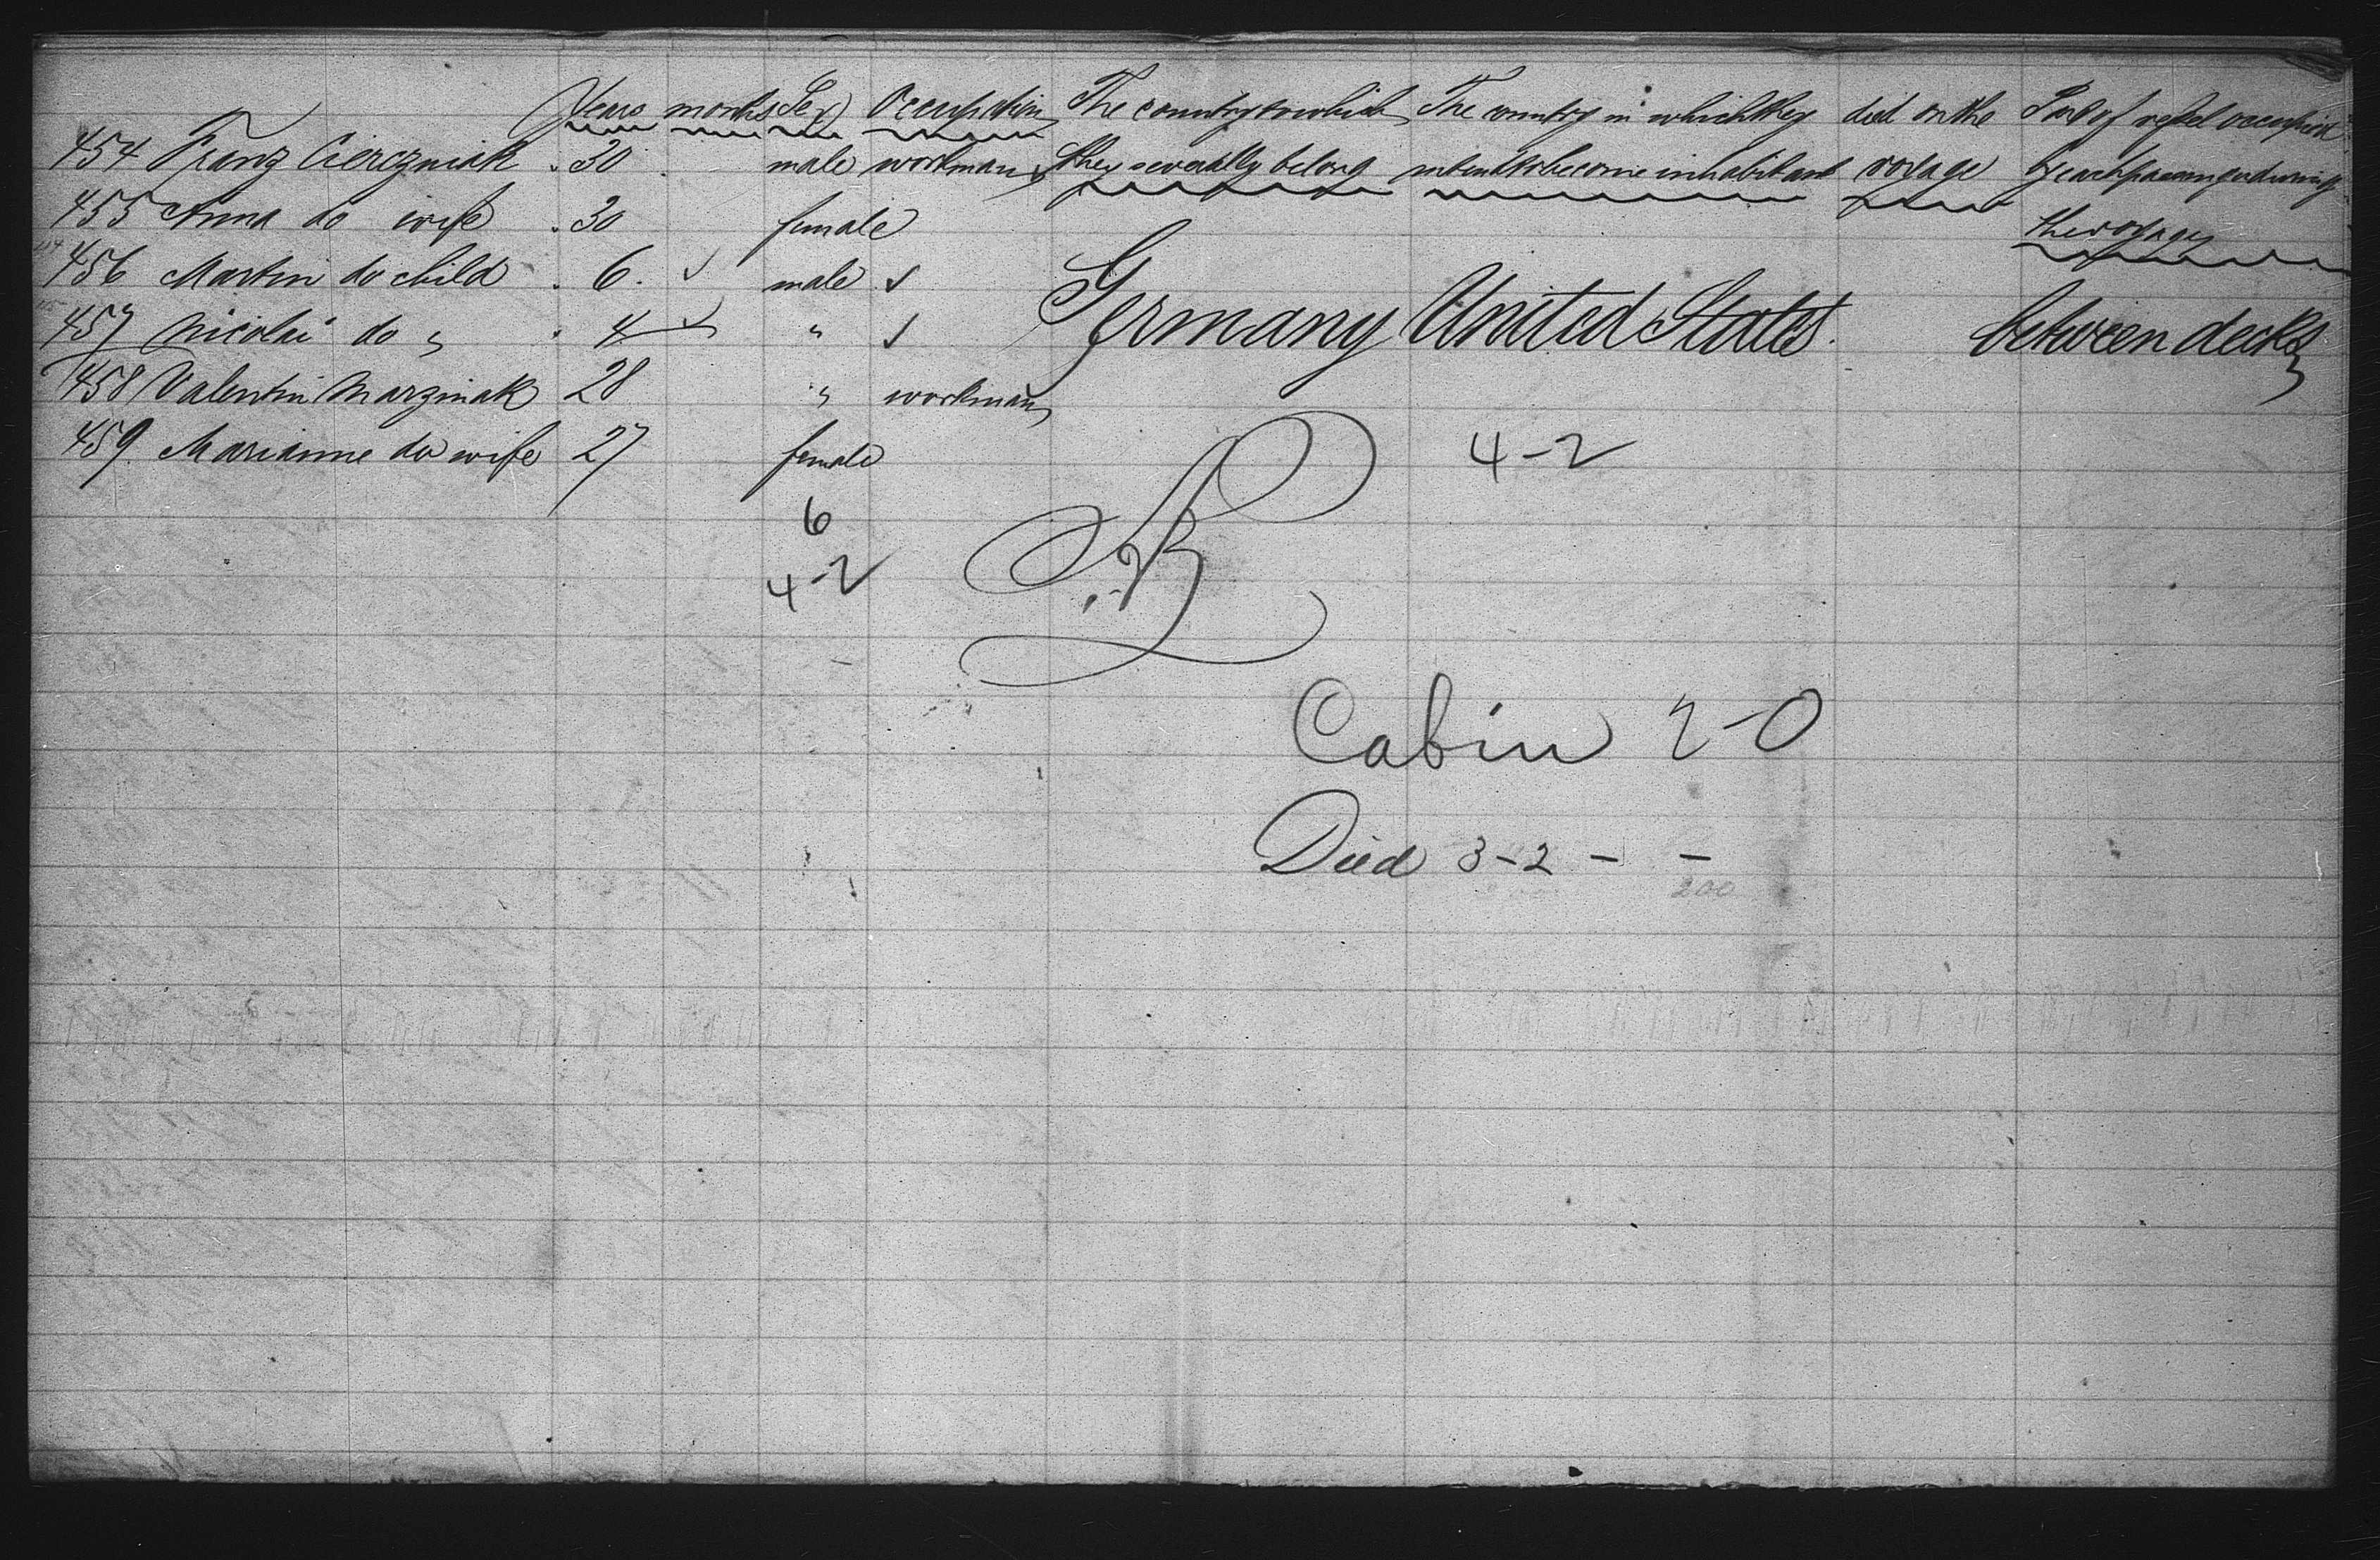 Years months Sex Occupation The country to which The country in which they died on the Part of vessel occupied
454 Franz Cierczniak 30 male workman they severally belong intend to become inhabitants voyage by each passenger during
455 Anna do wife 30 female the voyage
456 Martin do child 6 male
457 Nicolai do " 4 " Germany United States between decks
458 Valentin Marzniak 28 " workman
459 Marianne do wife 27 female
4-2
6
4-2
Cabin 2-0
Died 3-2 - -
200